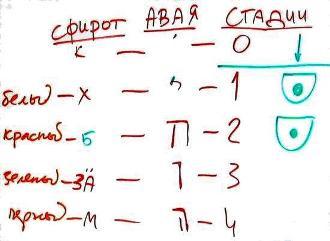 СФИРОТ АВАЯ СТАДИИ
К — ' — 0
белый — Х — — 1
красный — Б — П — 2
зеленый — ЗА — — 3
черный — М — П — 4